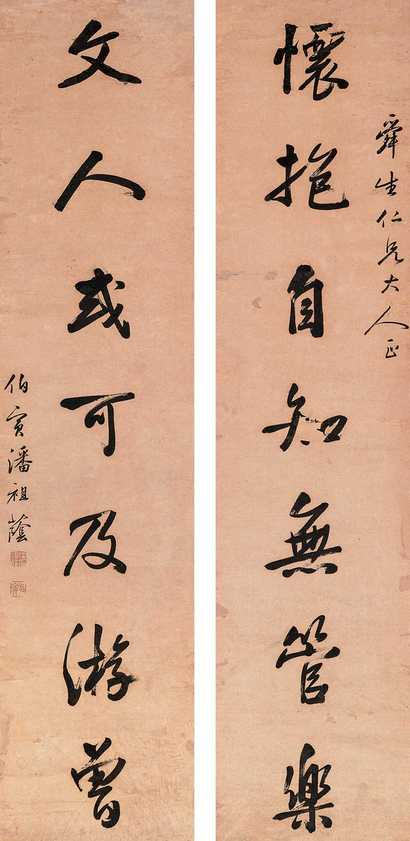 舜生仁兄大人正
懷抱自知無管樂
文人或可及游曾
伯寅潘祖蔭